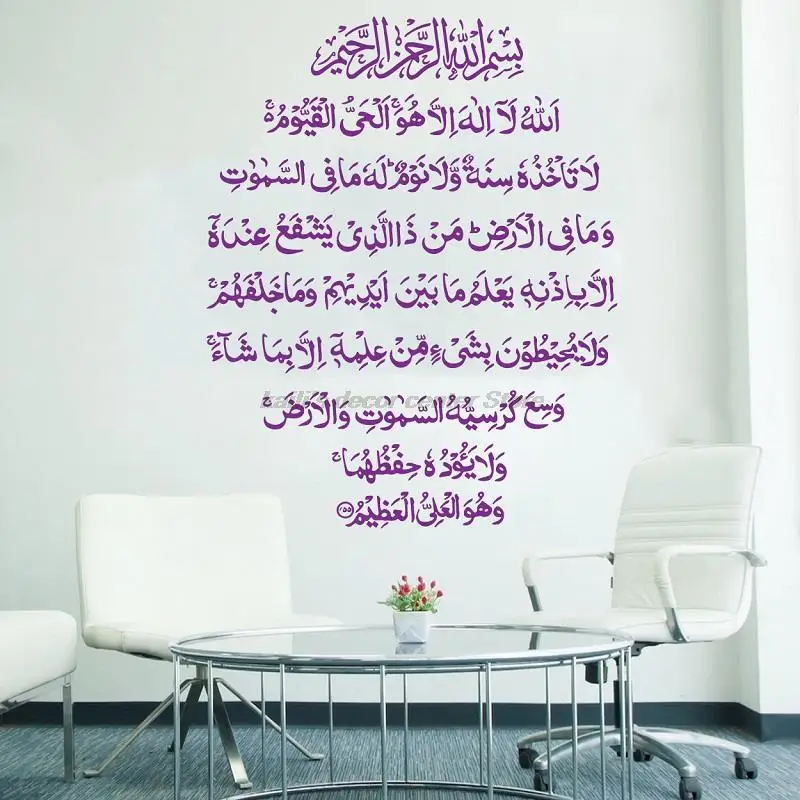 بِسْمِ اللّٰهِ الرَّحْمٰنِ الرَّحِيْمِ
اَللّٰهُ لَآ اِلٰهَ اِلَّا هُوَ ۚ اَلْحَیُّ الْقَيُّوْمُ ۚ
لَا تَاْخُذُهٗ سِنَةٌ وَّلَا نَوْمٌ ؕ لَهٗ مَا فِی السَّمٰوٰتِ
وَمَا فِی الْاَرْضِ ؕ مَنْ ذَا الَّذِیْ يَشْفَعُ عِنْدَهٗۤ
اِلَّا بِاِذْنِهٖ ؕ يَعْلَمُ مَا بَيْنَ اَيْدِيْهِمْ وَمَا خَلْفَهُمْ ۚ
وَلَا يُحِيْطُوْنَ بِشَیْءٍ مِّنْ عِلْمِهٖۤ اِلَّا بِمَا شَآءَ ۚ
وَسِعَ كُرْسِيُّهُ السَّمٰوٰتِ وَالْاَرْضَ ۚ
kaili's decor center Store
وَلَا يَـُٔوْدُهٗ حِفْظُهُمَا ۚ
وَهُوَ الْعَلِیُّ الْعَظِيْمُ ۝۲۵۵